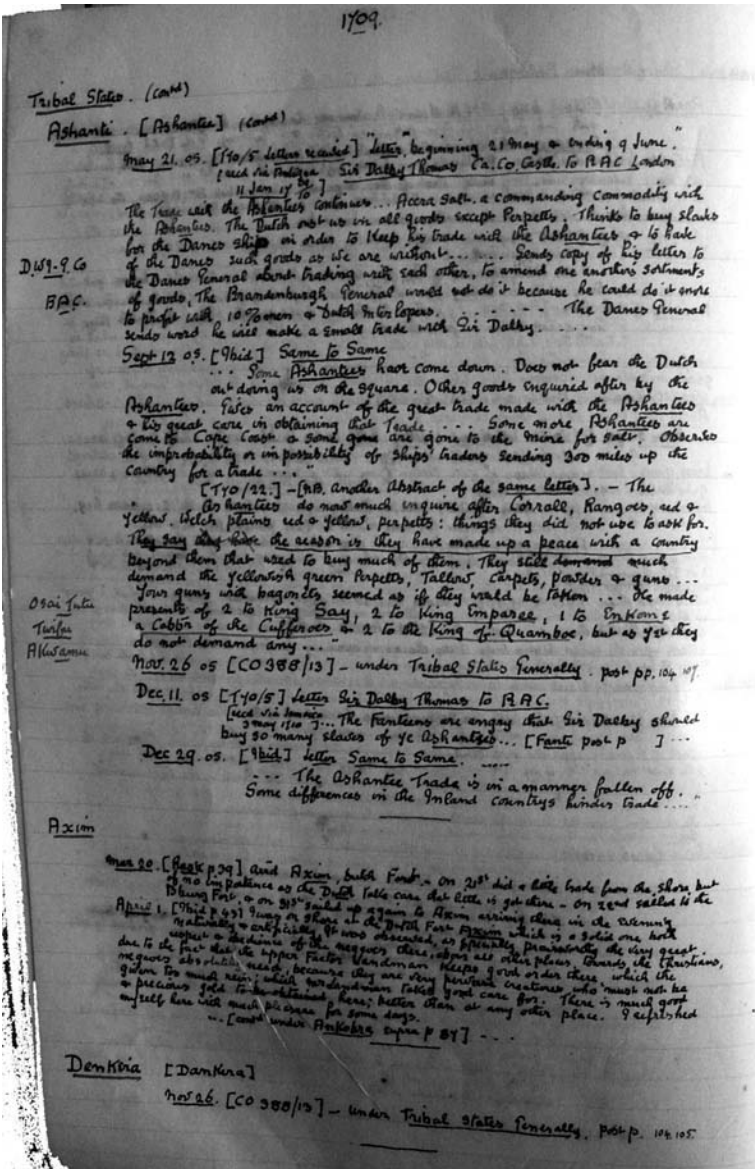 1709.
Tribal States. (Contd)
Ashanti. [Ashantee] (Contd)
May 21. 05. [T70/5 Letters received] "Letter, beginning 21 May & ending 9 June."
[recd via Antigua Sir Dalby Thomas Ca. Co. Castle. To RAC London
11 Jan 17 10]
The Trade with the Ashantees continues... Accra Salt. a commanding commodity with
the Ashantees. The Dutch outst us in all goods except Perpetts. Thinks to buy slaves
for the Danes ship in order to keep his trade with the Ashantees & to have
of the Danes such goods as we are without...... Sends copy of his letter to
D.W9-9. Co the Danes General about trading with each other, to amend one another's sortments
BAC. of goods, The Brandenburgh General would not do it because he could do it more
to profit with 10% men & Dutch Interlopers. ...... The Danes General
sends word he will make a small trade with Sir Dalby....
Sept 12 05. [Ibid] Same to Same
... Some Ashantees have come down. Does not fear the Dutch
out doing us on the square. Other goods enquired after by the
Ashantees. Gives an account of the great trade made with the Ashantees
& his great care in obtaining that Trade.... Some more Ashantees are
come to Cape Coast & some gone are gone to the Mine for salt. Observes
the improbability or impossibility of ships' traders sending 300 miles up the
country for a trade..."
[T70/22.] - [NB. another Abstract of the same letter]. - The
Ashantees do now much inquire after Corrall, Rangoes, red &
yellow. Welch plains red & yellow, perpetts: things they did not use to ask for.
They say the reason is they have made up a peace with a country
beyond them that used to buy much of them. They still demand much
demand the yellowish green Perpetts, Tallow, Carpets, powder & guns...
Your guns with bagonets seemed as if they would be taken... He made
Osai Tutu presents of 2 to King Say, 2 to King Emparee, 1 to Enkome
Twifu a Cabbr of the Cufferoes & 2 to the King of Quamboe, but as yet they
Akwamu do not demand any..."
Nov. 26 05 [CO 388/13] - under Tribal States Generally. post pp. 104. 107.
Dec. 11. 05 [T70/5] Letter Sir Dalby Thomas to RAC.
[recd via Jamaica
3 May 1710]... The Fanteens are angry that Sir Dalby should
buy so many slaves of ye Ashantees... [Fante post p ]...
Dec 29. 05. [Ibid] Letter Same to Same.
.... The Ashantee Trade is in a manner fallen off.
Some differences in the Inland Countrys hinder trade...."
Axim
Mar 20. [Rask p 39] Axim, Dutch Fort. - on 21st did a little trade from the shore, but
of no importance as the Dutch take care that little is got there - on 22nd sailed to the
Fort, & on 31st sailed up again to Axim arriving there in the evening
April 1. [Ibid p 43] on shore at the Dutch Fort Axim which is a solid one both
naturally & artificially. It was observed, as specially praiseworthy the very great
respect & obedience of the negroes there, above all other places, towards the Christians,
due to the fact that the upper Factor keeps good order there, which the
negroes absolutely need, because they are very perverse creatures who must not be
given too much rein; which took good care for. There is much good
& precious gold to be obtained here; better than at any other place. I refreshed
myself here with much pleasure for some days.
... [contd under Ankobra supra p 87]...
Denkera [Dankera]
Nov 26. [CO 388/13] - under Tribal States Generally. post p. 104. 105.